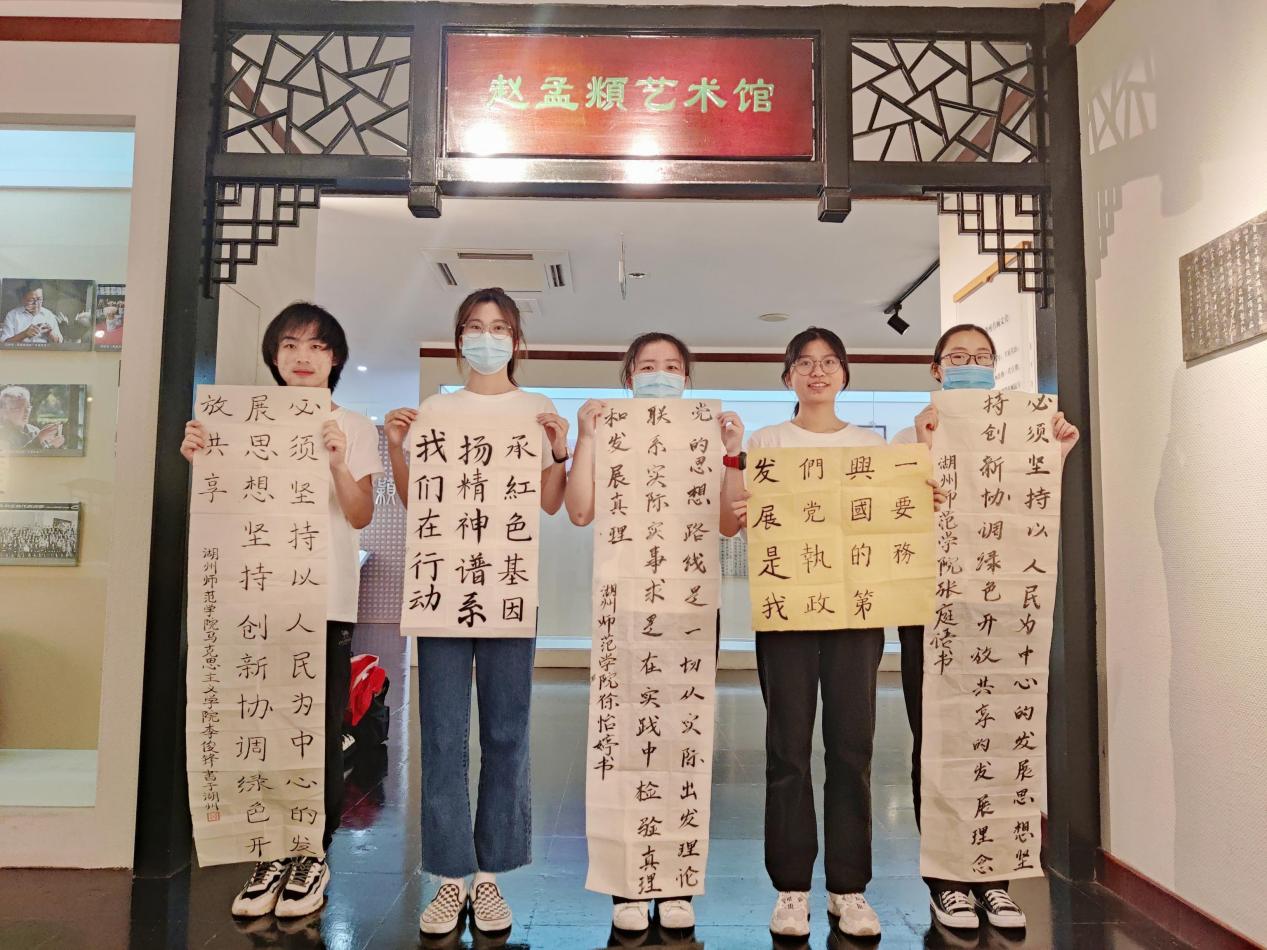 赵孟頫艺术馆
必须坚持以人民为中心的发
展思想坚持创新协调绿色开
放共享
湖州师范学院马克思主义学院李俊锋书于湖州
承紅色基因
扬精神谱系
我们在行动
党的思想路线是一切从实际出发理论
联系实际实事求是在实践中检验真理
和发展真理
湖州师范学院徐怡婷书
发展是我
們党執政
興國的第
一要務
必须坚持以人民为中心的发展思想坚
持创新协调绿色开放共享的发展理念
湖州师范学院张庭语书